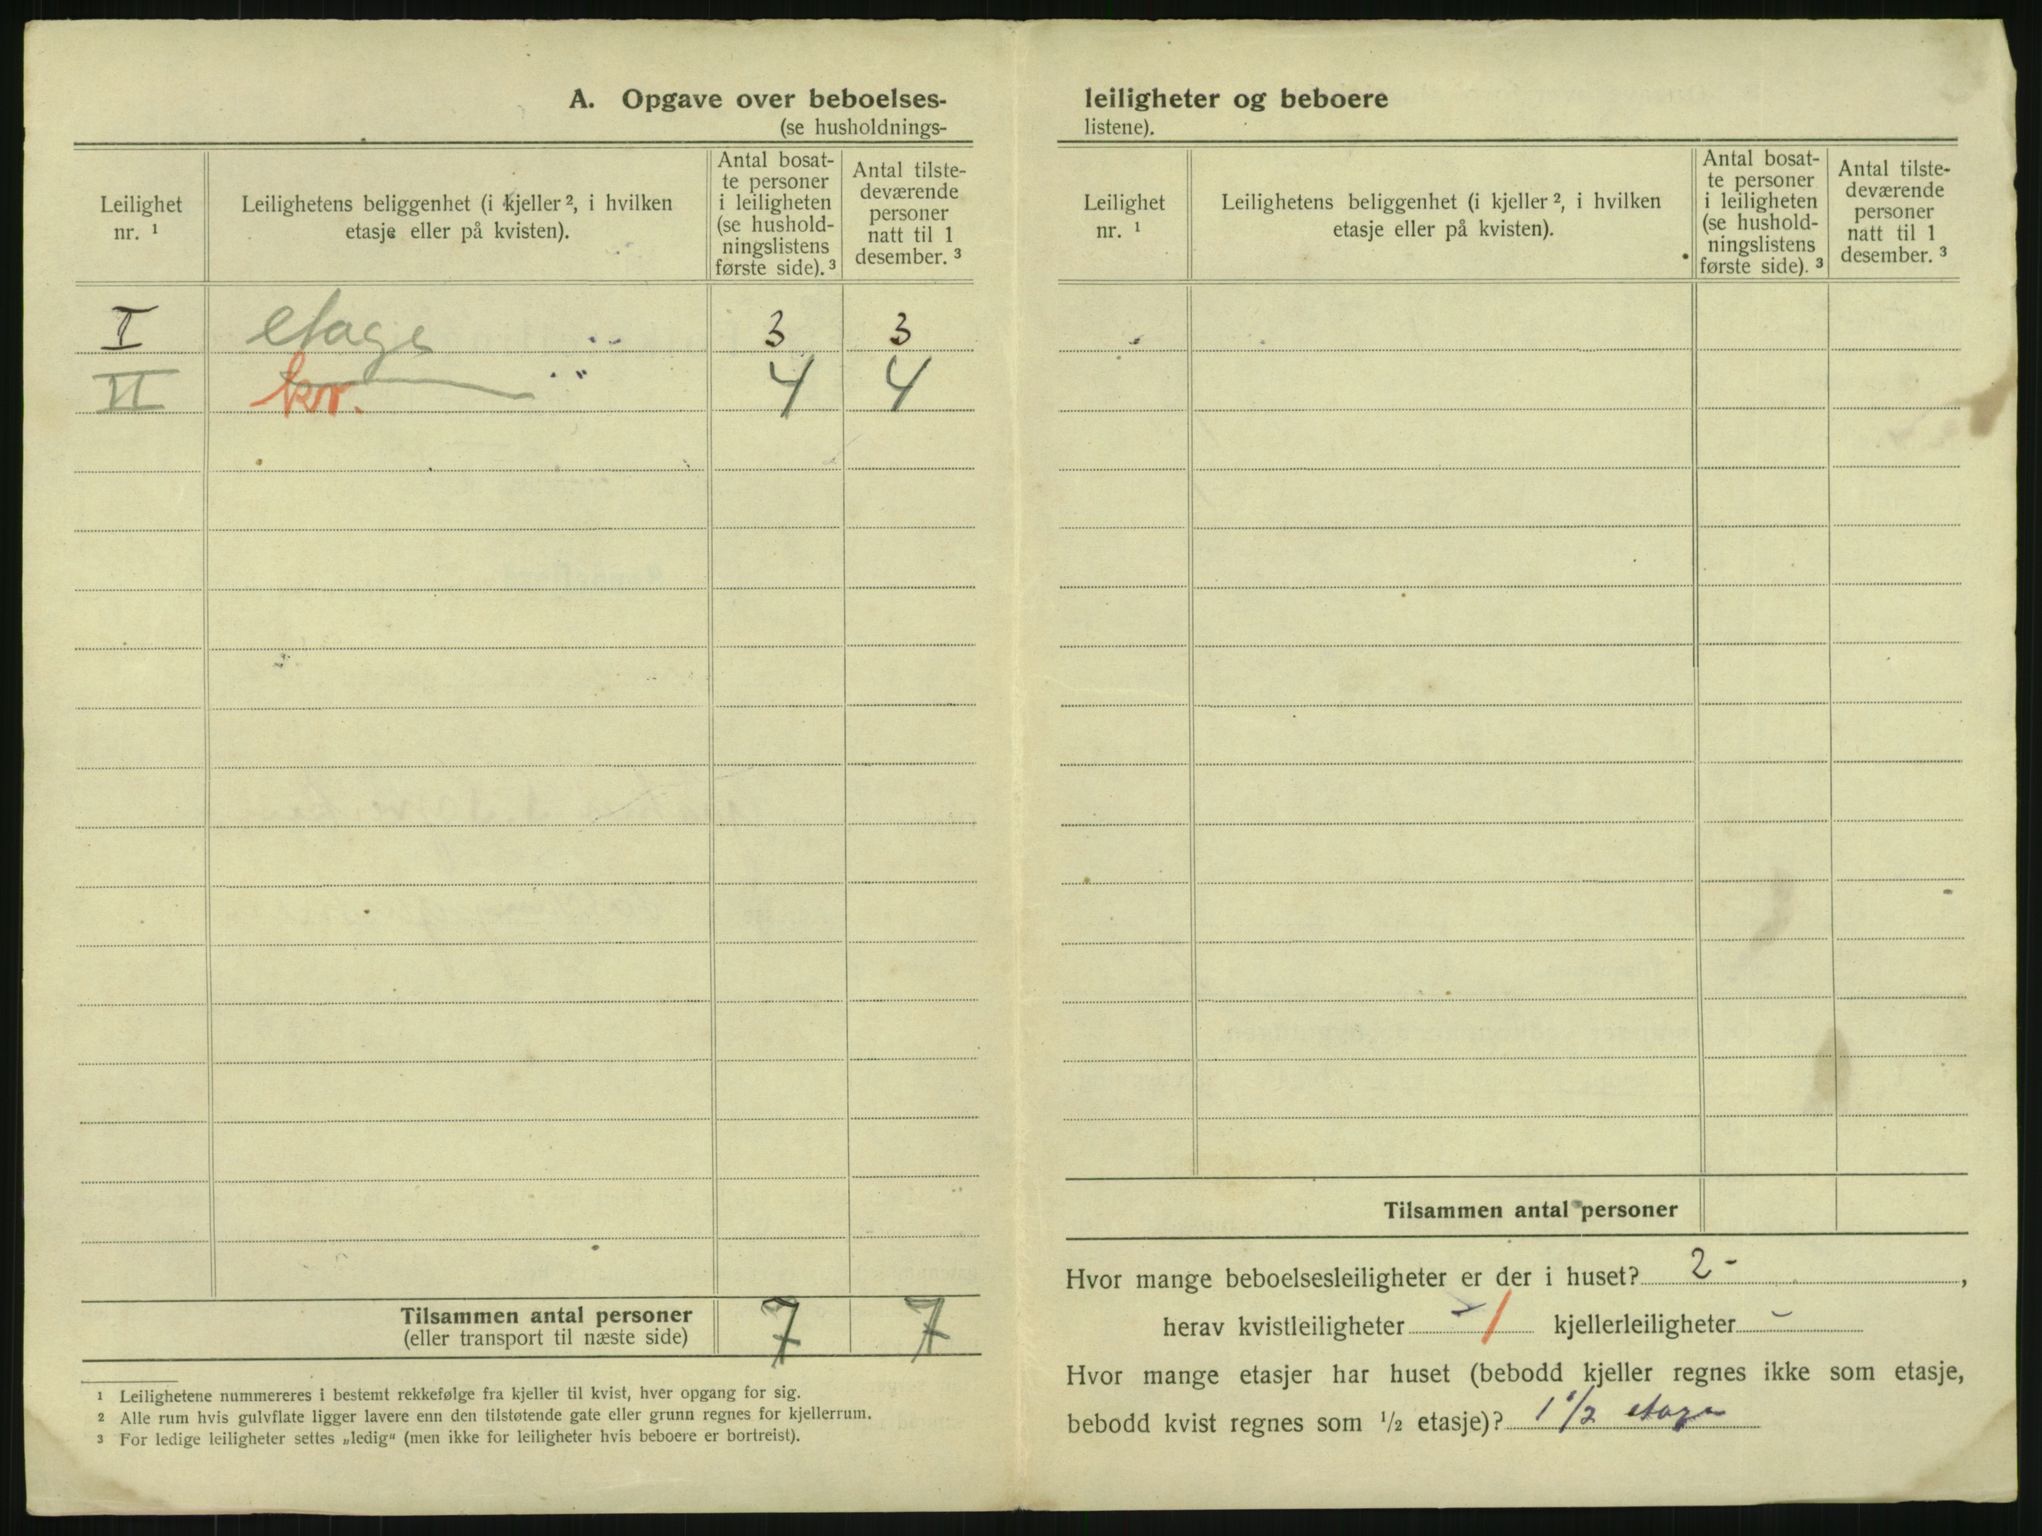 A. Opgave over beboelses-
(se husholdnings-
Leilighet nr. ¹
Leilighetens beliggenhet (i kjeller ², i hvilken etasje eller på kvisten).
Antal bosat-
te personer
i leiligheten
(se hushold-
ningslistens
første side). ³
Antal tilste-
deværende
personer
natt til 1
desember. ³
I etage " 3 3
II kv. " 4 4
Tilsammen antal personer 7 7
(eller transport til næste side)
¹ Leilighetene nummereres i bestemt rekkefølge fra kjeller til kvist, hver opgang for sig.
² Alle rum hvis gulvflate ligger lavere enn den tilstøtende gate eller grunn regnes for kjellerrum.
³ For ledige leiligheter settes „ledig“ (men ikke for leiligheter hvis beboere er bortreist).
leiligheter og beboere
listene).
Leilighet nr. ¹
Leilighetens beliggenhet (i kjeller ², i hvilken etasje eller på kvisten).
Antal bosat-
te personer
i leiligheten
(se hushold-
ningslistens
første side). ³
Antal tilste-
deværende
personer
natt til 1
desember. ³
Tilsammen antal personer
Hvor mange beboelsesleiligheter er der i huset? 2 - ,
herav kvistleiligheter 1 kjellerleiligheter -
Hvor mange etasjer har huset (bebodd kjeller regnes ikke som etasje,
bebodd kvist regnes som ½ etasje)? 1 ½ etage